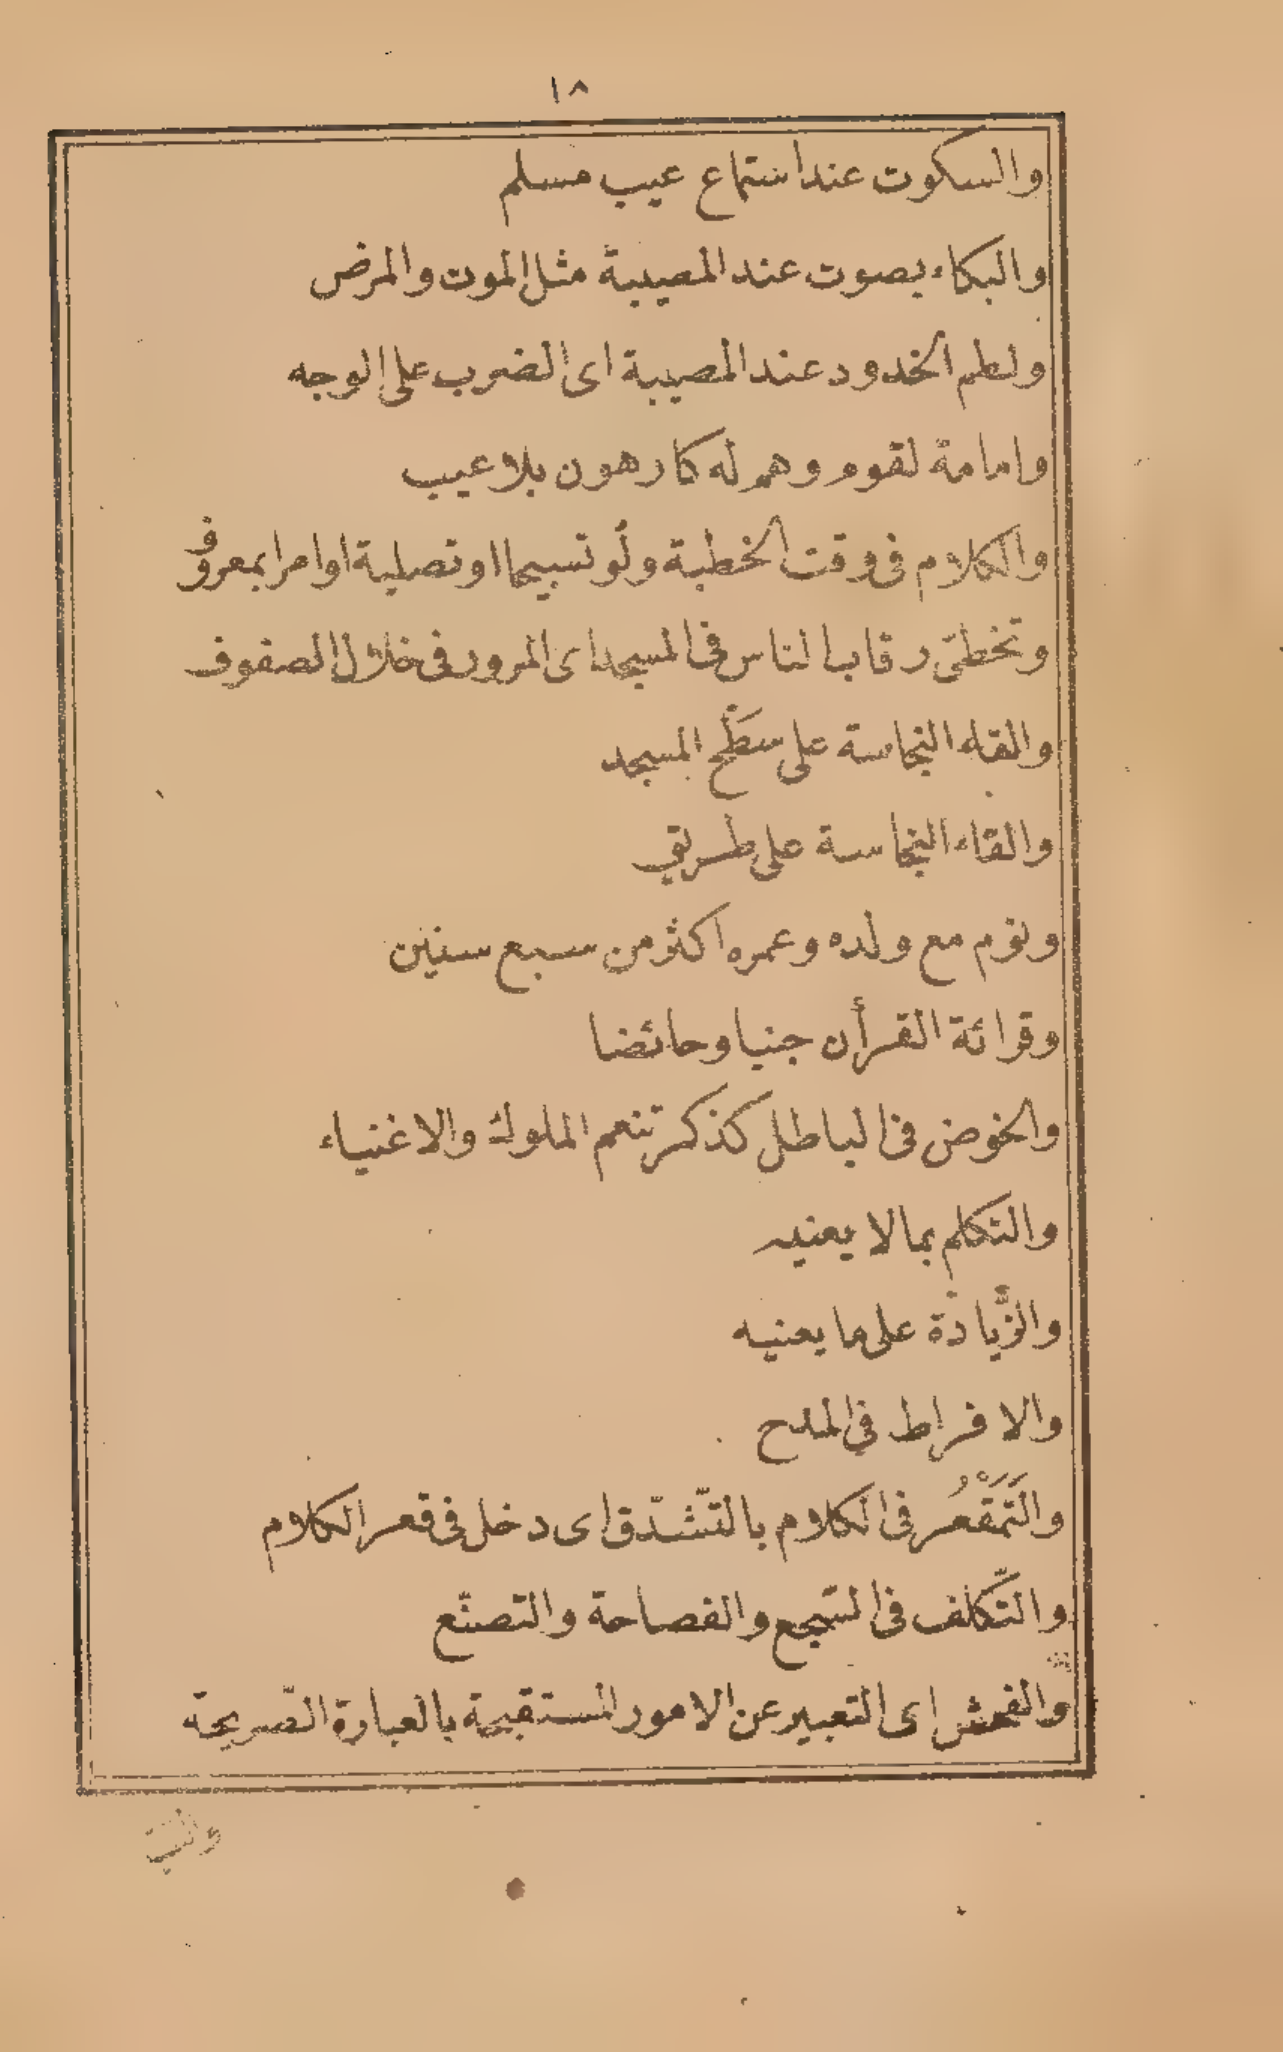 ١٨
والسكوت عند استماع عيب مسلم
والبكاء بصوت عند المصيبة مثل الموت والمرض
ولطم الخدود عند المصيبة اى الضرب على الوجه
وامامة لقوم وهم له كارهون بلا عيب
والكلام فى وقت الخطبة ولو تسبيحا او تصلية او امرا بمعروف
وتخطّى رقاب الناس فى المسجد اى المرور فى خلال الصفوف
والقاء النجاسة على سَطْح المسجد
والقاء النجاسة على طريق
ونوم مع ولده وعمره اكثر من سبع سنين
وقرائة القرأن جنبا وحائضا
والخوض فى الباطل كذكر تنعم الملوك والاغنياء
والتكلم بما لا يعنيه
والزّيادة على ما يعنيه
والافراط فى المدح
والتَمَقْعُر فى الكلام بالتّشدّق اى دخل فى قعر الكلام
والتّكلف فى السّجع والفصاحة والتصنّع
والفحش اى التعبير عن الامور المستقبحة بالعبارة الصّريحة